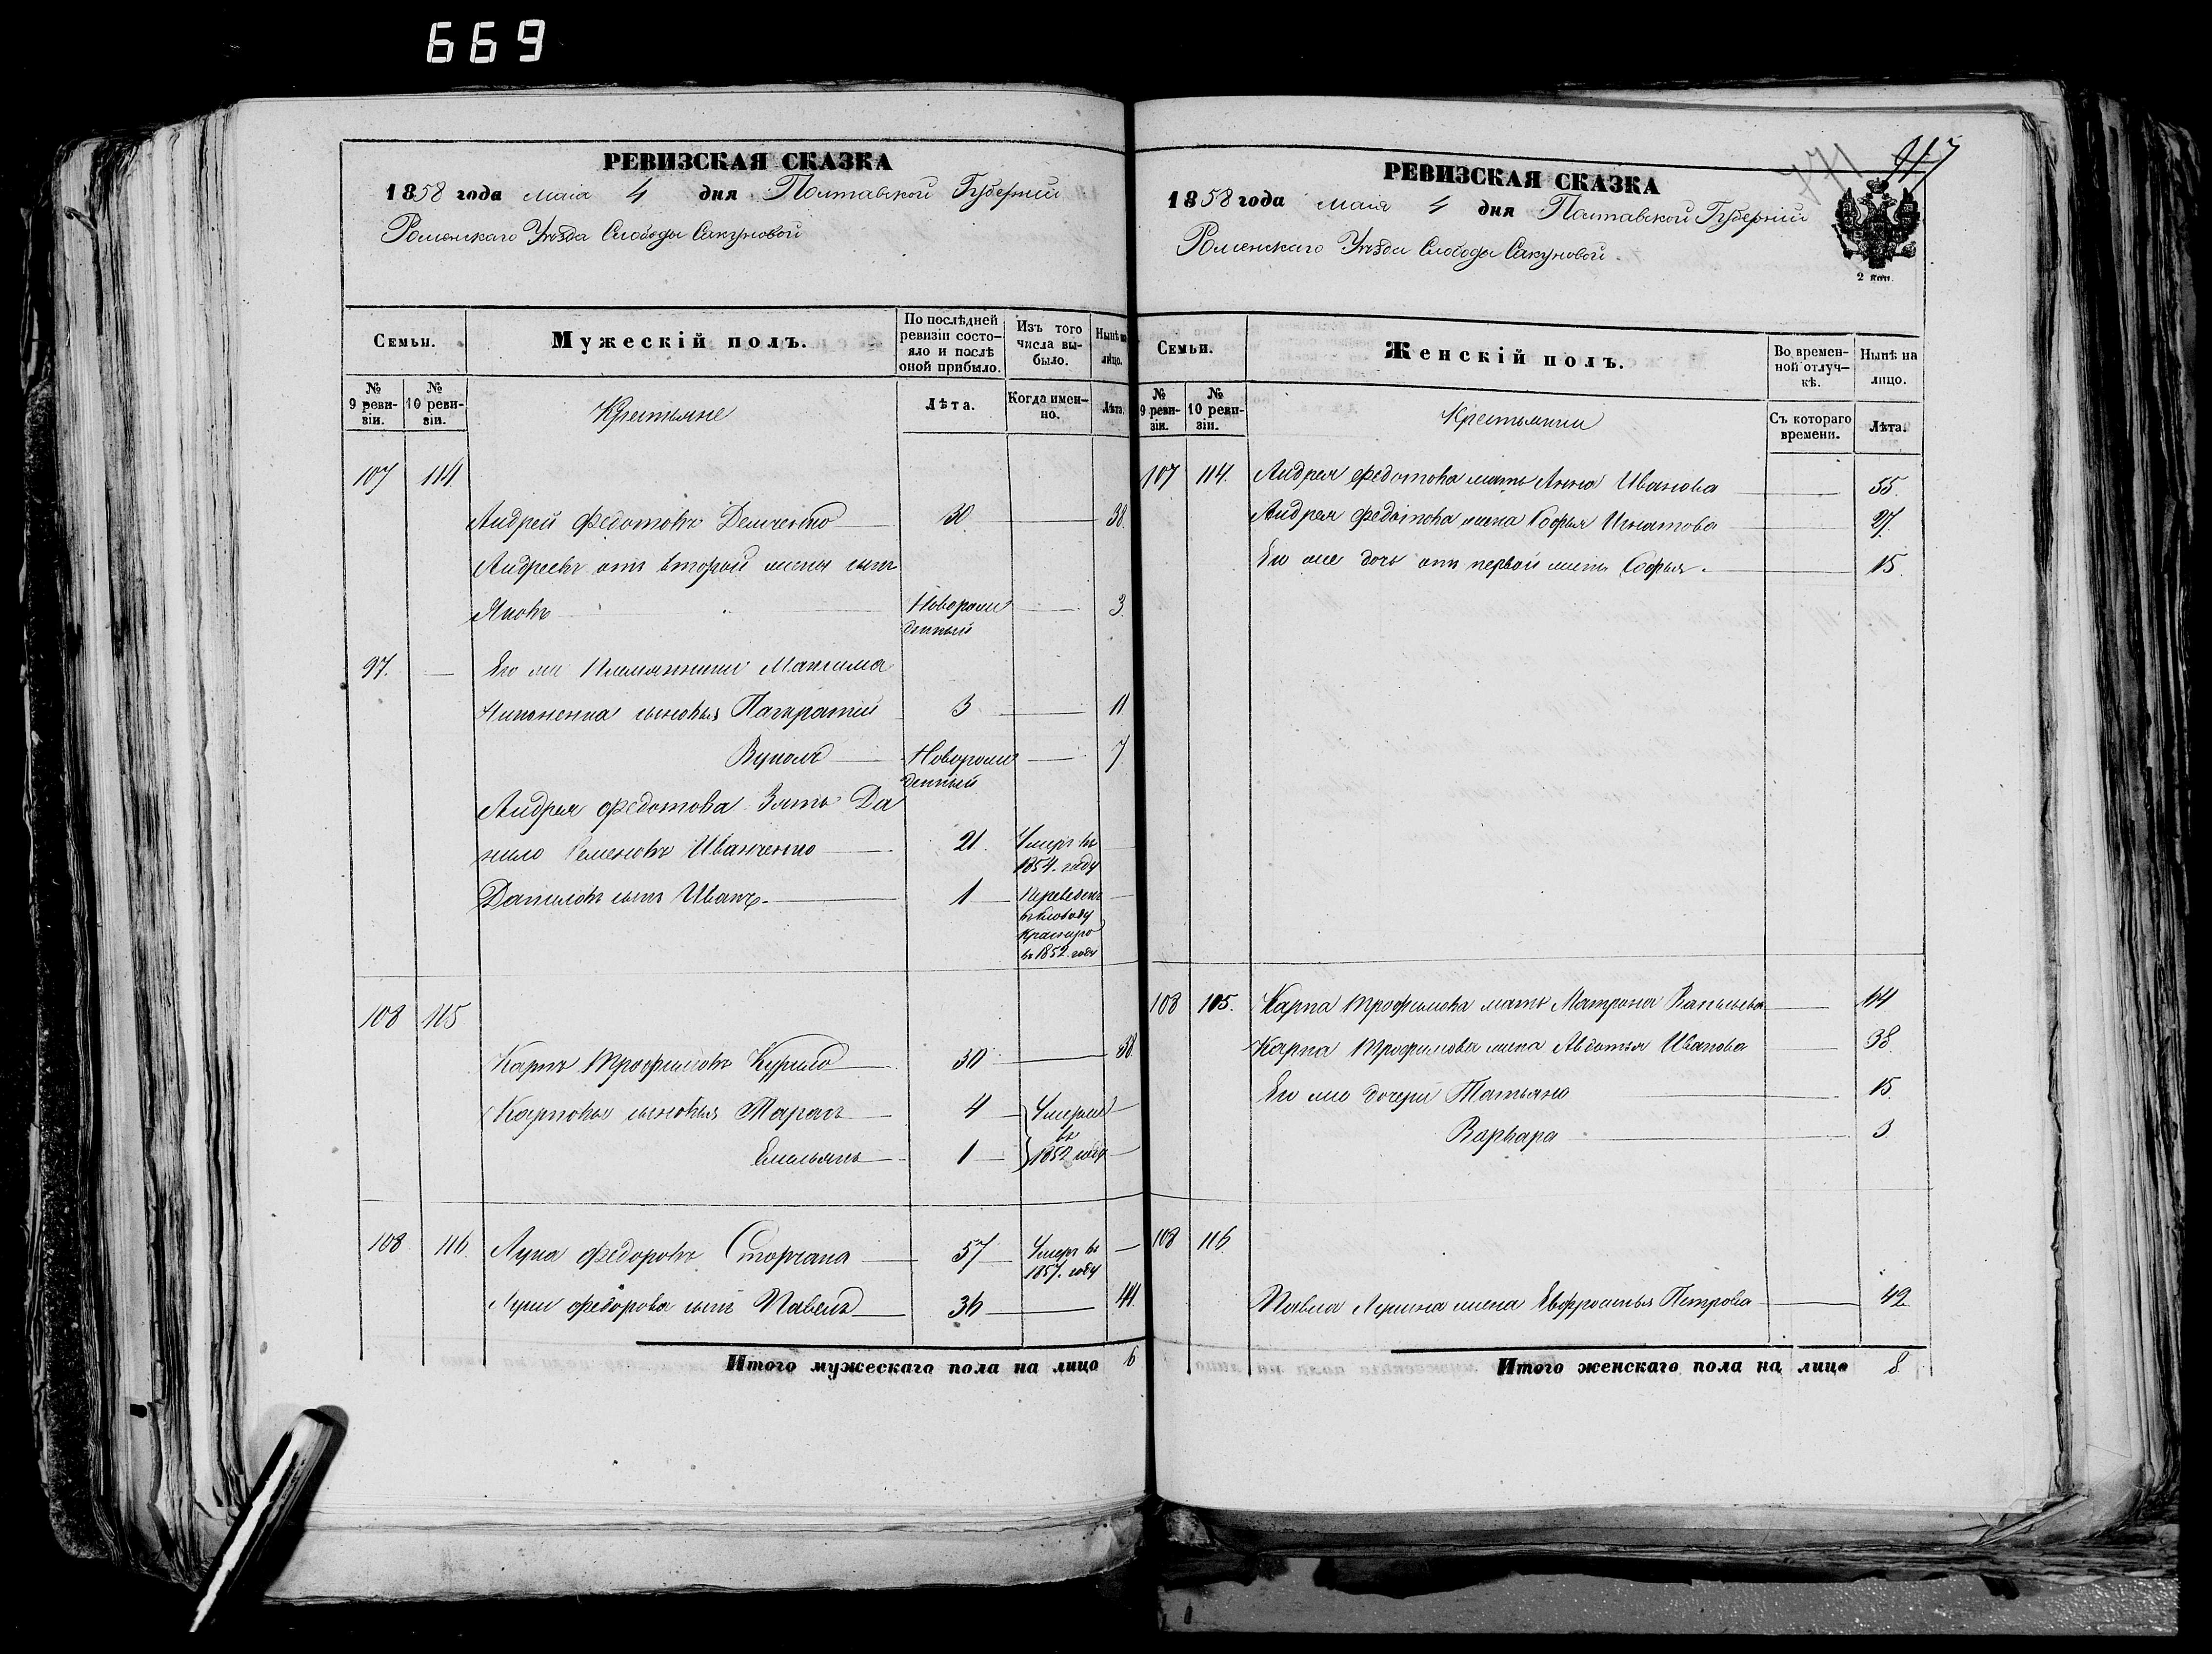 669
РЕВИЗСКАЯ СКАЗКА
1858 года маія 4 дня Полтавской Губерніи
Роменскаго Уѣзда Слободы Сакуновой
Семьи.
Мужескій полъ.
По послѣдней ревизіи состо-
яло и послѣ оной прибыло.
Изъ того числа вы-
было.
Нынѣ на лицо.
№ 9 реви-
зіи.
№ 10 реви-
зіи.
Крестьяне
Лѣта.
Когда имен-
но.
Лѣта.
107 114
Андрей Федотовъ Демченко 30 38.
Андреевъ отъ второй жены сынъ
Яковъ Новорож
денный 3
97. Его же Племянники Максима
сыновья Панкратій 3 11
Вуколъ Новорож
денный 7
Андрея Федотова Зять Да
нило Семеновъ Иванченко 21. Умеръ въ
1854. году
Даниловъ сынъ Иванъ. 1 Переведенъ
въ слободу
въ 1852 году
108 115
Карпъ Трофимовъ Курило 30 38.
Карповы сыновья Тарасъ 4 Умерли
въ
Емельянъ 1 1852 году
108 116. Лука Федоровъ Сторчака 57 Умеръ въ
1857. году
Луки Федорова сынъ Павелъ 36 44.
Итого мужескаго пола на лицо 6
РЕВИЗСКАЯ СКАЗКА
1858 года маія 4 дня Полтавской Губерніи
Роменскаго Уѣзда Слободы Сакуновой
2 коп.
Семьи.
Женскій полъ.
Во времен-
ной отлуч-
кѣ.
Нынѣ на лицо.
№ 9 реви-
зіи.
№ 10 реви-
зіи.
Крестьянки
Съ котораго времени.
Лѣта.
107 114. Андрея Федотова мать Анна Иванова 55.
Андрея Федотова жена Софья Игнатова 27.
Его же дочь отъ первой жены Софья. 15.
108 105. Карпа Трофимова мать Матрона 64
Карпа Трофимова жена Авдотья Иванова 38.
Его же дочери Татьяна 15.
Варвара 3
108 116
Павла Лукина жена Евфросинья Петрова 42.
Итого женскаго пола на лицо 8.